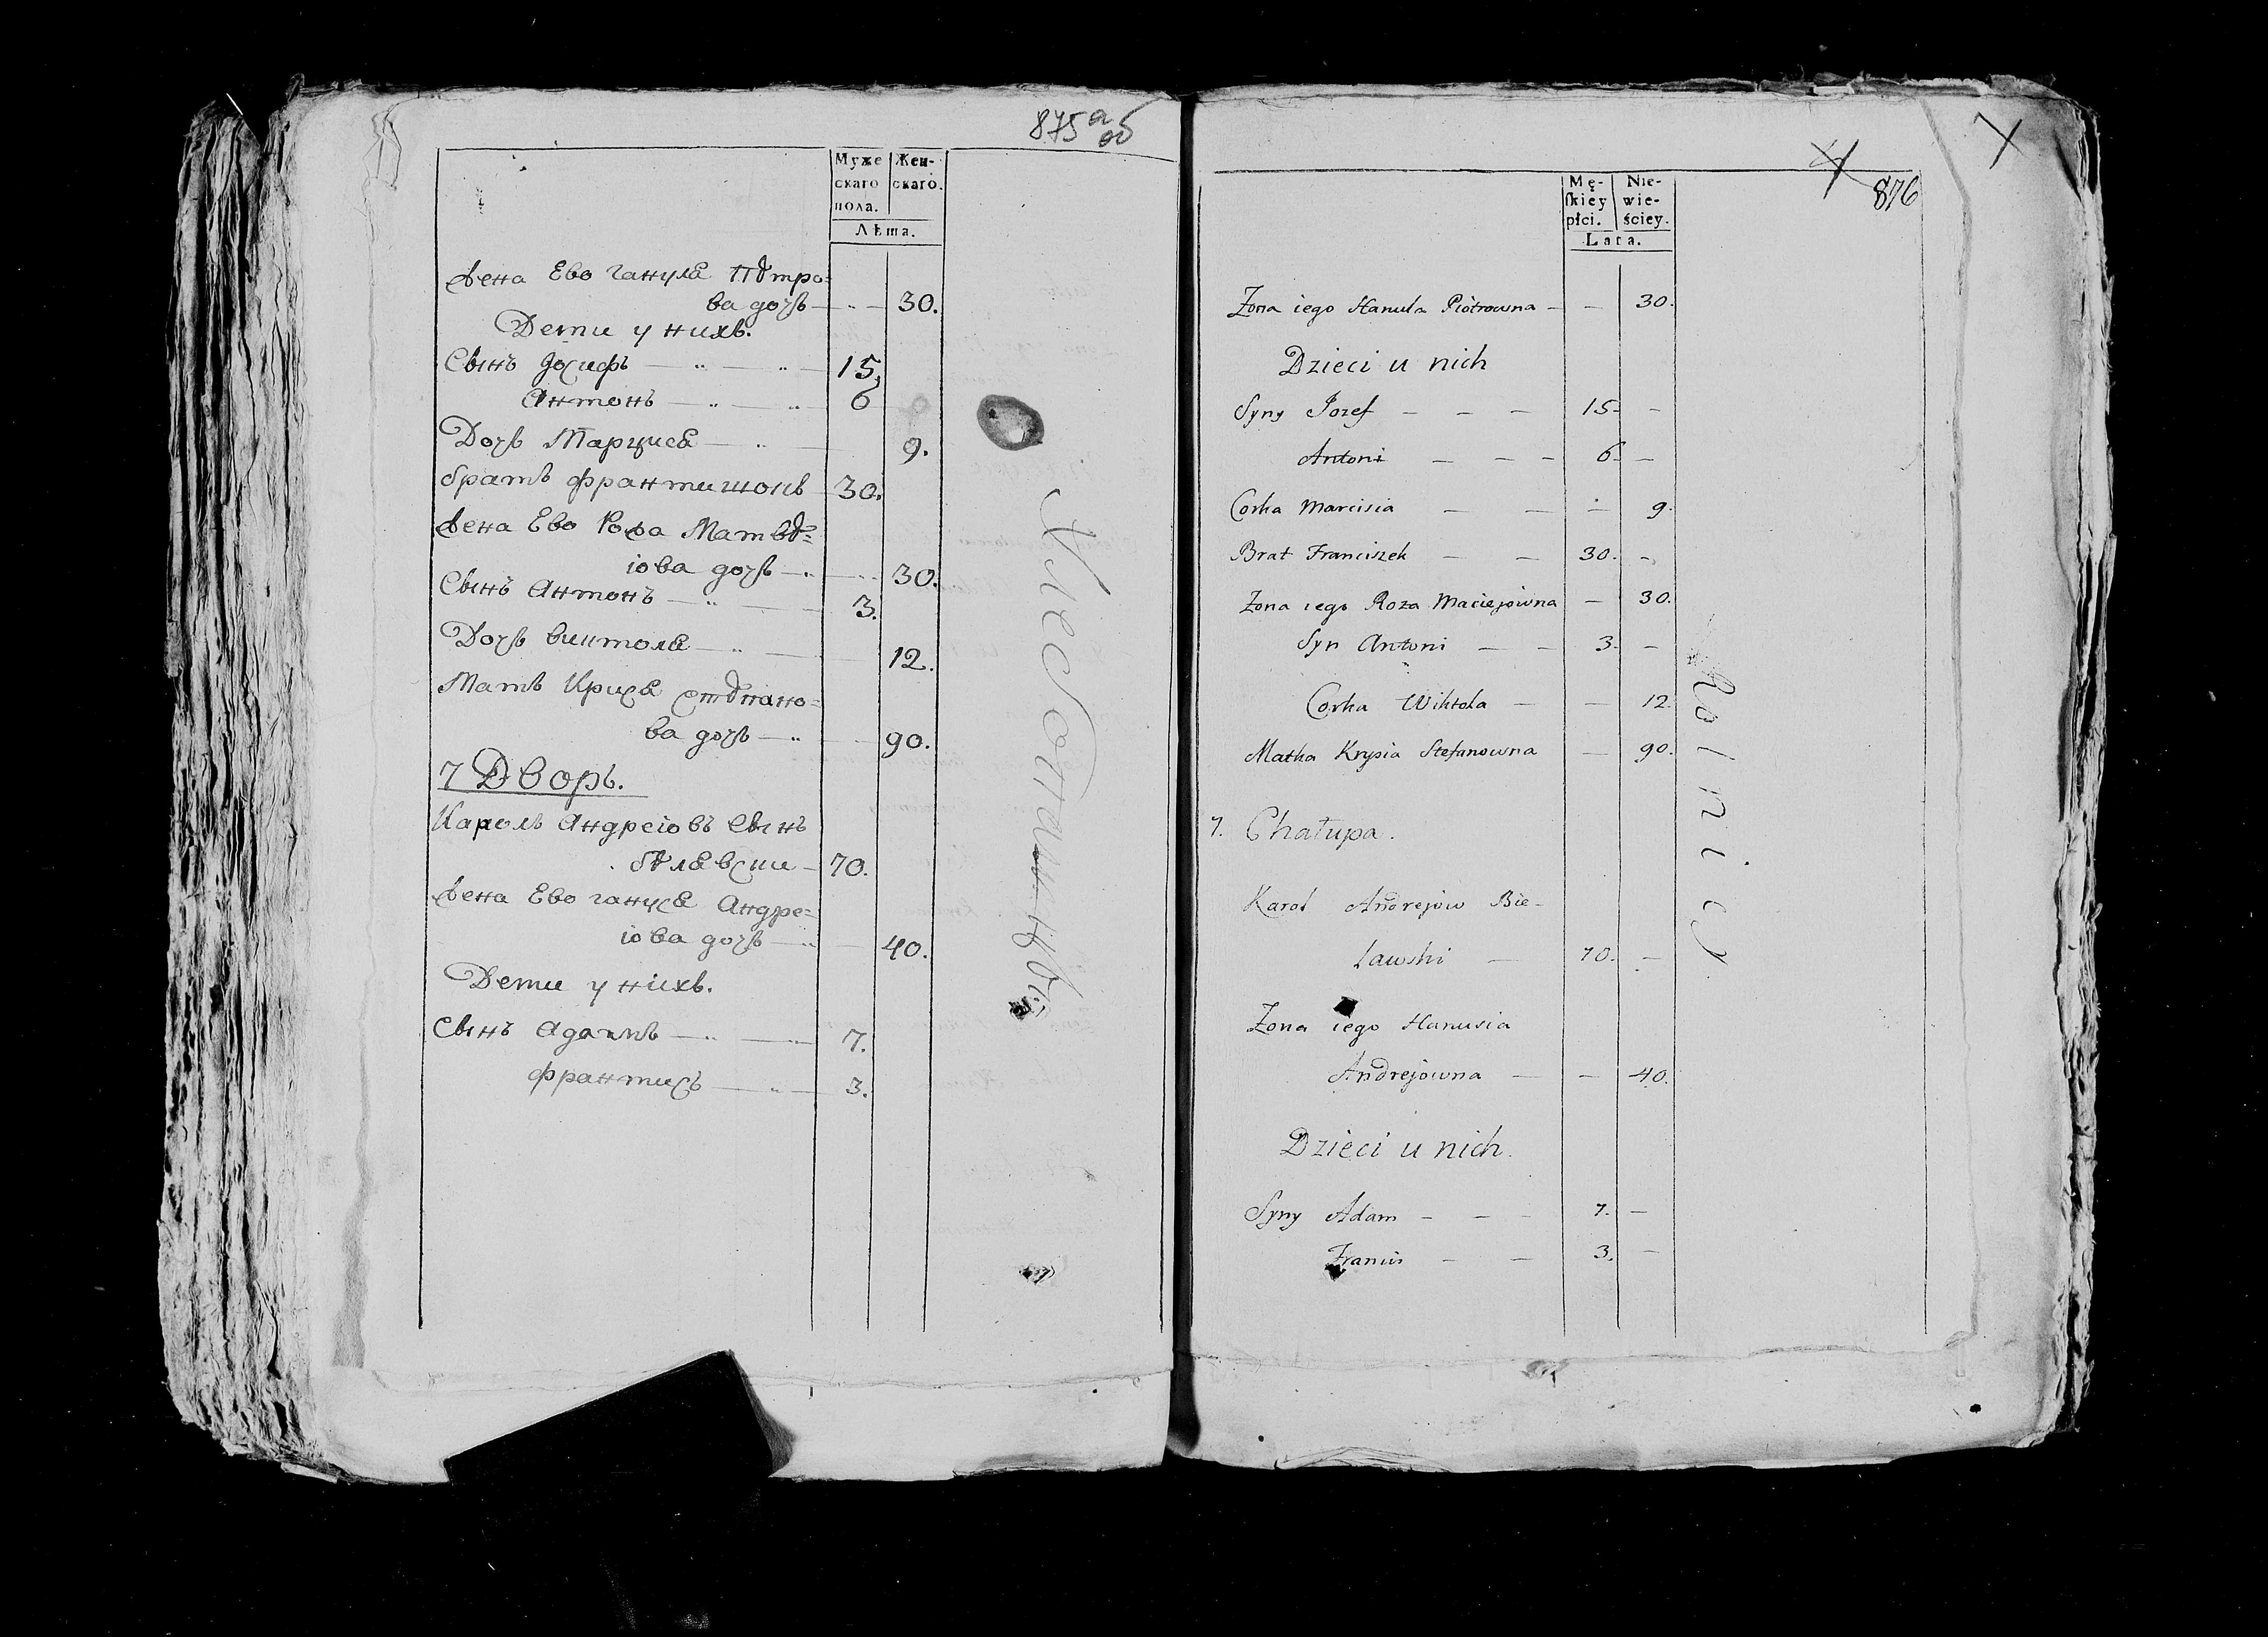 875 а об
Муже Жен-
скаго скаго.
пола.
Лѣта.
Жена Ево Ганула Пѣтро=
ва дочь — 30.
Дети у нихъ.
Сынъ Іосифъ — 15,
Антонъ — 6
Дочь Марцися — 9.
братъ Франтишокъ 30.
Жена Ево Роза Матвѣ=
іова дочь — 30.
Сынъ Антонъ — 3.
Дочь Виктоля — 12.
Мать Крися Стѣпано=
ва дочь — 90.
7 Дворъ.
Кароль Андреіовъ Сынъ
бѣлявски — 70.
Жена Ево Гануся Андре=
іова дочь — 40.
Дети у нихъ.
Сынъ Адамъ — 7.
Франтисъ — 3.
876
Mę- Nie-
ſkiey wie-
płci. ściey.
Lata.
Zona iego Hanula Piotrowna — — 30.
Dzieci u nich
Syny Jozef — — — 15. —
Antoni — — — 6. —
Corka Marcisia — — — 9.
Brat Franciszek — — 30. —
Zona iego Roza Maciejowna — 30.
Syn Antoni — — 3. —
Corka Wiktola — — 12.
Matka Krysia Stefanowna — 90.
7. Chałupa.
Karol Andrejow Bie-
lawski — 70. —
Zona iego Hanusia
Andrejowna — — 40.
Dzieci u nich.
Syny Adam — — — 7. —
Francis — — 3. —
Rolnicy.